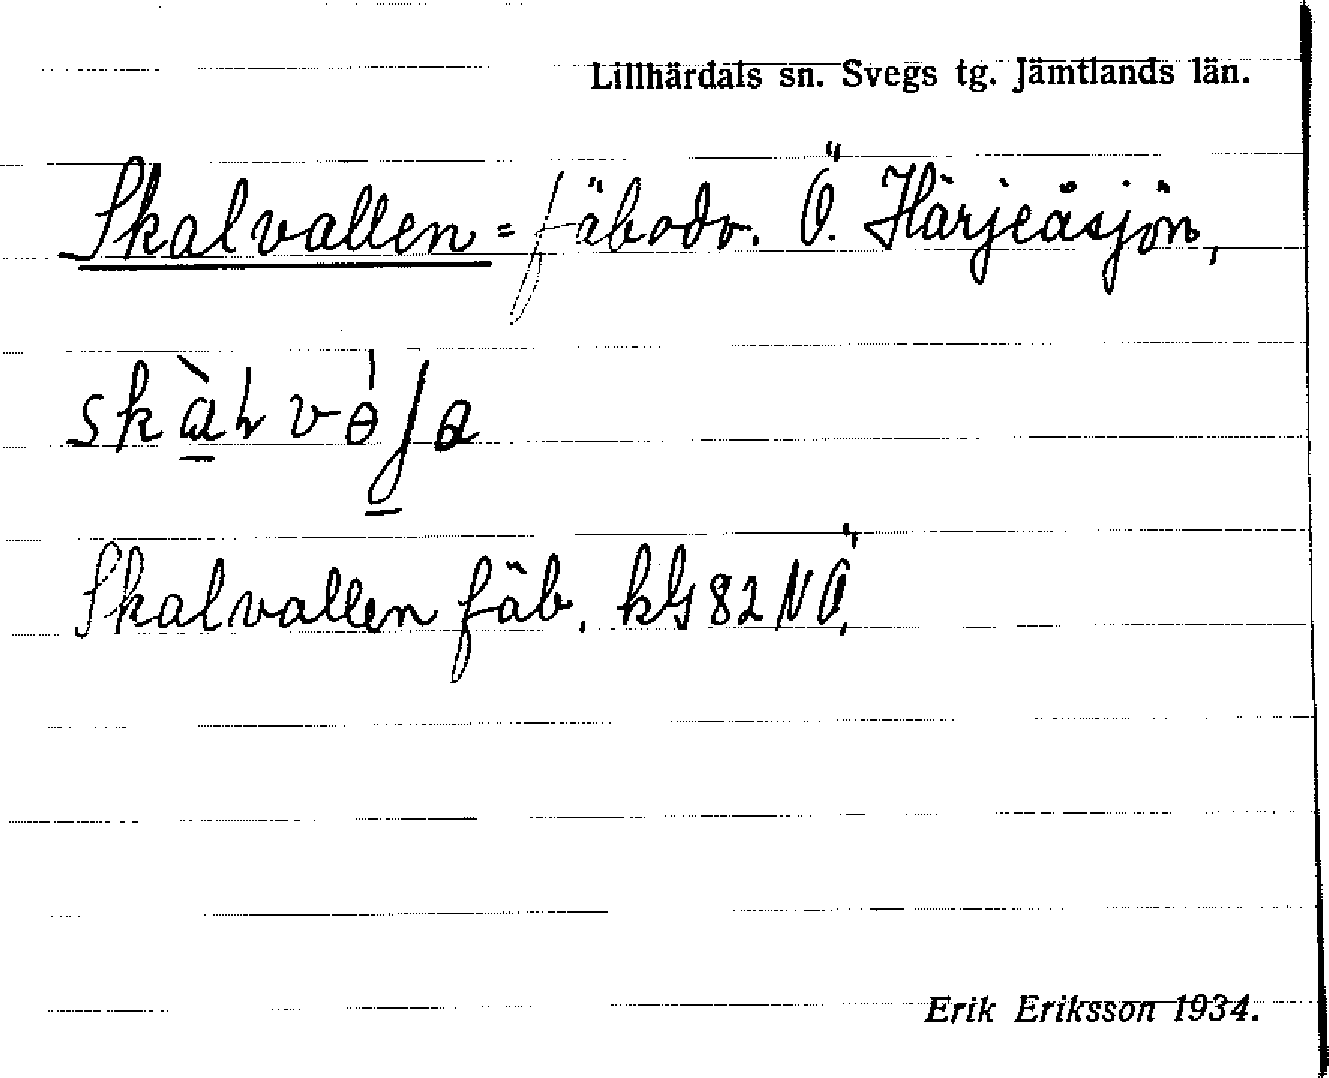 Lillhärdals sn. Svegs tg. Jämtlands län.
Skalvallen = fäbodv. Ö. Härjeåsjön,
Skalvallen fäb. kG 82 NÖ.
Erik Eriksson 1934.